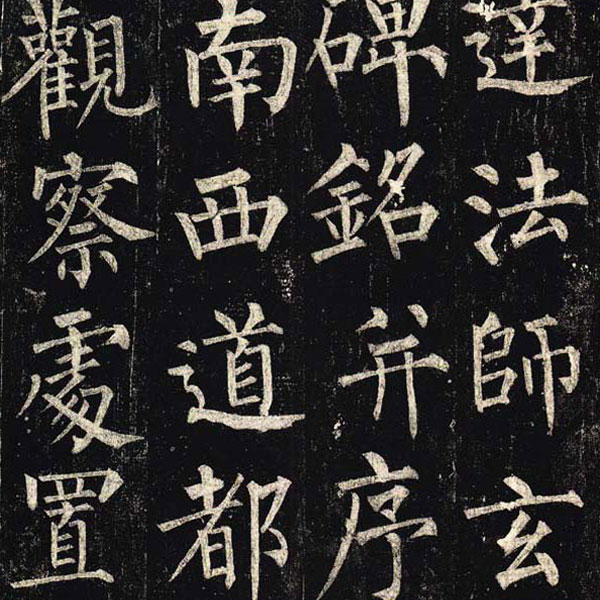 達法師玄
碑銘并序
南西道都
觀察處置